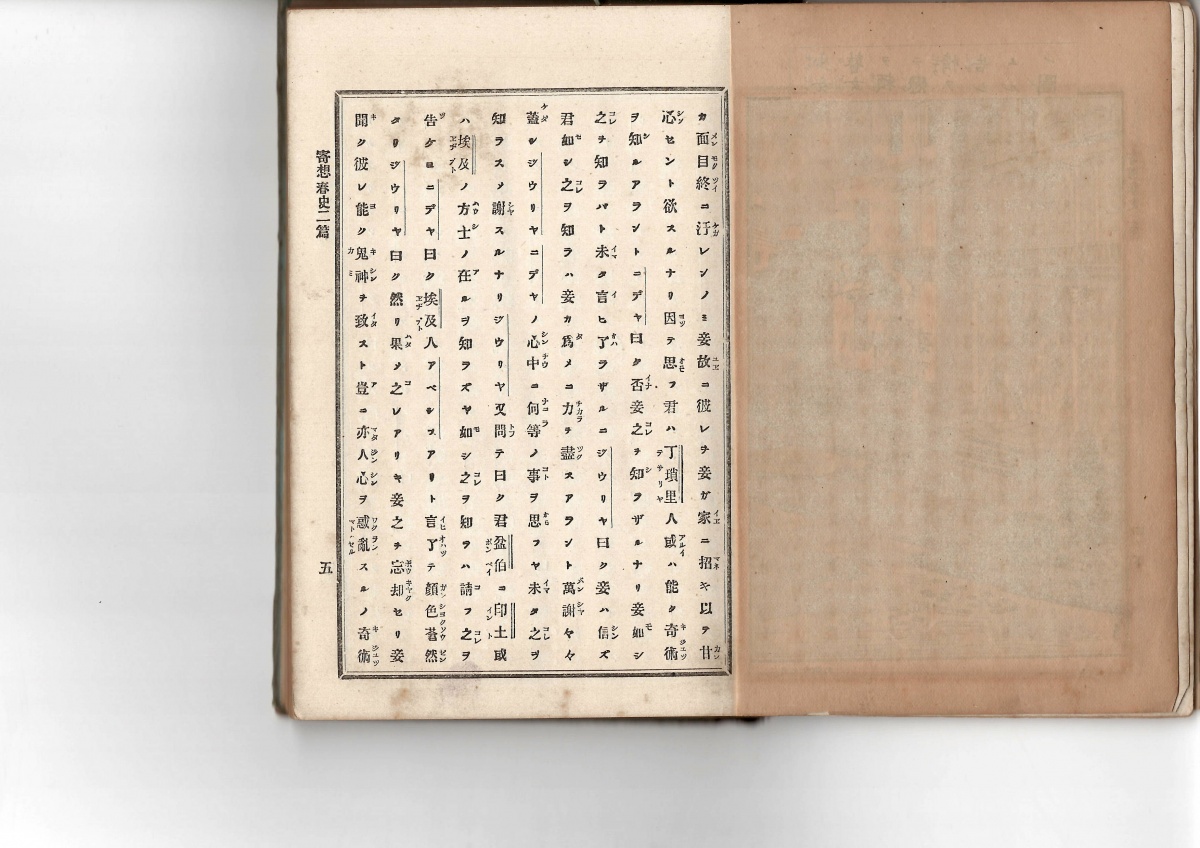 カ面目終ニ汙レンノミ妾故ニ彼レヲ妾ガ家ニ招キ以ヲ甘
心セント欲スルナリ因テ思フ君ハ丁瑣里人或ハ能ク奇術
ヲ知ルアラントニデヤ曰ク否妾之ヲ知ラザルナリ妾如シ
之ヲ知ラバト未タ言ヒ了ラザルニジウリヤ曰ク妾ハ信ズ
君如シ之ヲ知ラハ妾カ爲メニ力ヲ盡スアラント萬謝々々
蓋シジウリヤニデヤノ心中ニ何等ノ事ヲ思フヤ未タ之ヲ
知ラスメ謝スルナリジウリヤ又問テ曰ク君盆伯ニ印土或
ハ埃及ノ方士ノ在ルヲ知ラズヤ如シ之ヲ知ラハ請フ之ヲ
告ケヨニデヤ曰ク埃及人アベシスアリト言了テ顔色蒼然
タリジウリヤ曰ク然リ果メ之レアリキ妾之ヲ忘却セリ妾
聞ク彼レ能ク鬼神ヲ致スト豈ニ亦人心ヲ惑亂スルノ奇術
寄想春史二篇
五